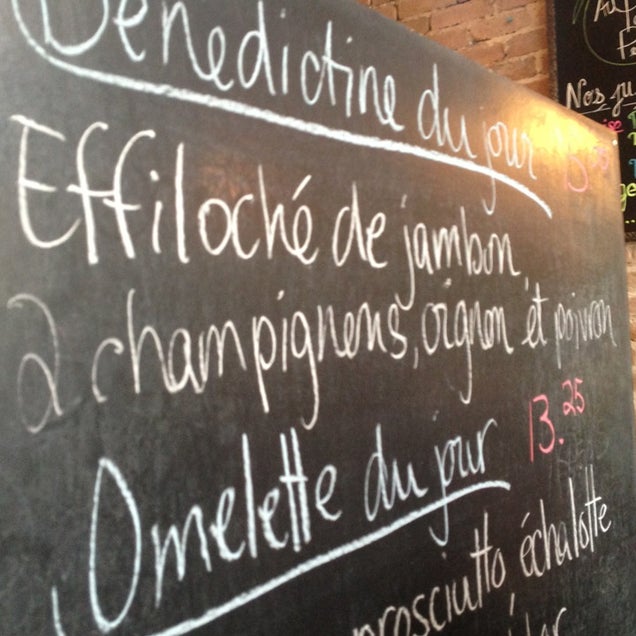 Bénédictine du jour
Effiloché de jambon,
2 champignons, oignon et poivron
Omelette du jour 13.25
prosciutto échalotte
Nos